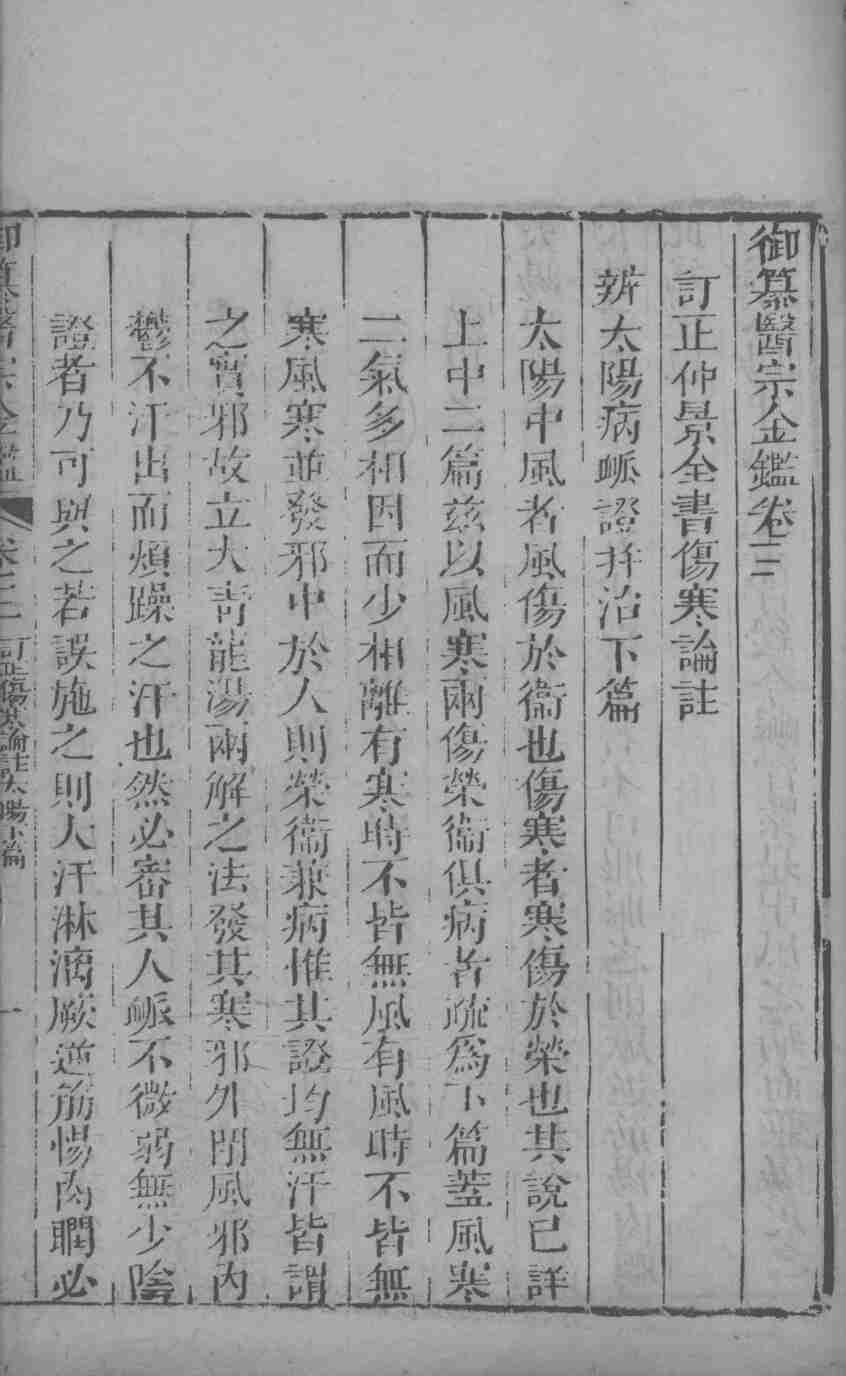 御纂醫宗金鑑卷三
訂正仲景全書傷寒論註
辨太陽病脈證并治下篇
太陽中風者風傷於衞也傷寒者寒傷於榮也其說已詳
上中二篇茲以風寒兩傷榮衞俱病者疏爲下篇蓋風寒
二氣多相因而少相離有寒時不皆無風有風時不皆無
寒風寒並發邪中於人則榮衞兼病惟其證均無汗皆謂
之實邪故立大青龍湯兩解之法發其寒邪外閉風邪內
鬱不汗出而煩躁之汗也然必審其人脈不微弱無少陰
證者乃可與之若誤施之則大汗淋漓厥逆筋惕肉瞤必
御纂醫宗金鑑 卷三 訂正傷寒論註太陽下篇 一